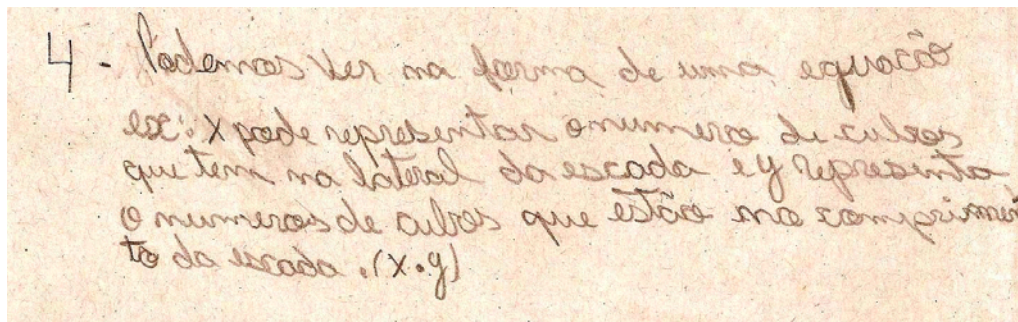 4 - Podemos ver na forma de uma equação
ex: X pode representar o numero de cubos
que tem na lateral da escada e y representa
o numeros de cubos que estão no comprimen
to da escada. (x.y)